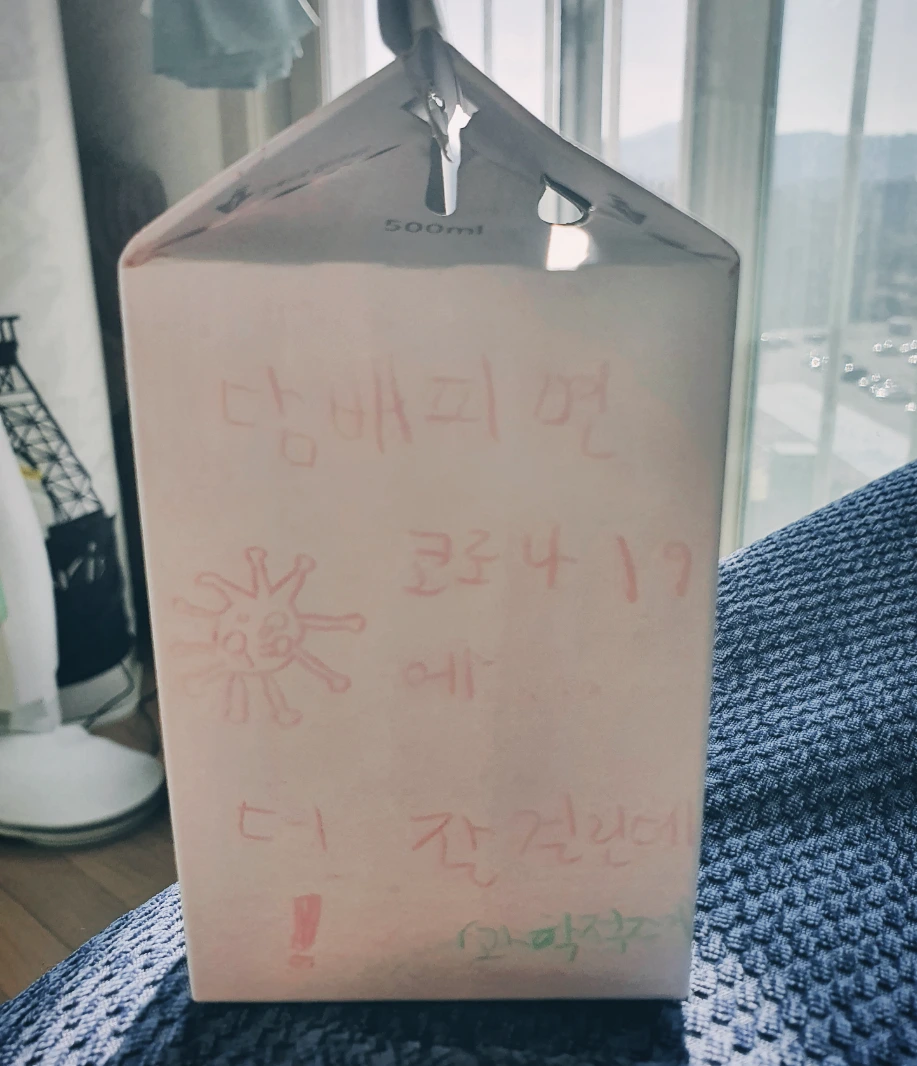 500ml
담배피면
코로나19
에
더 잘걸린데
!